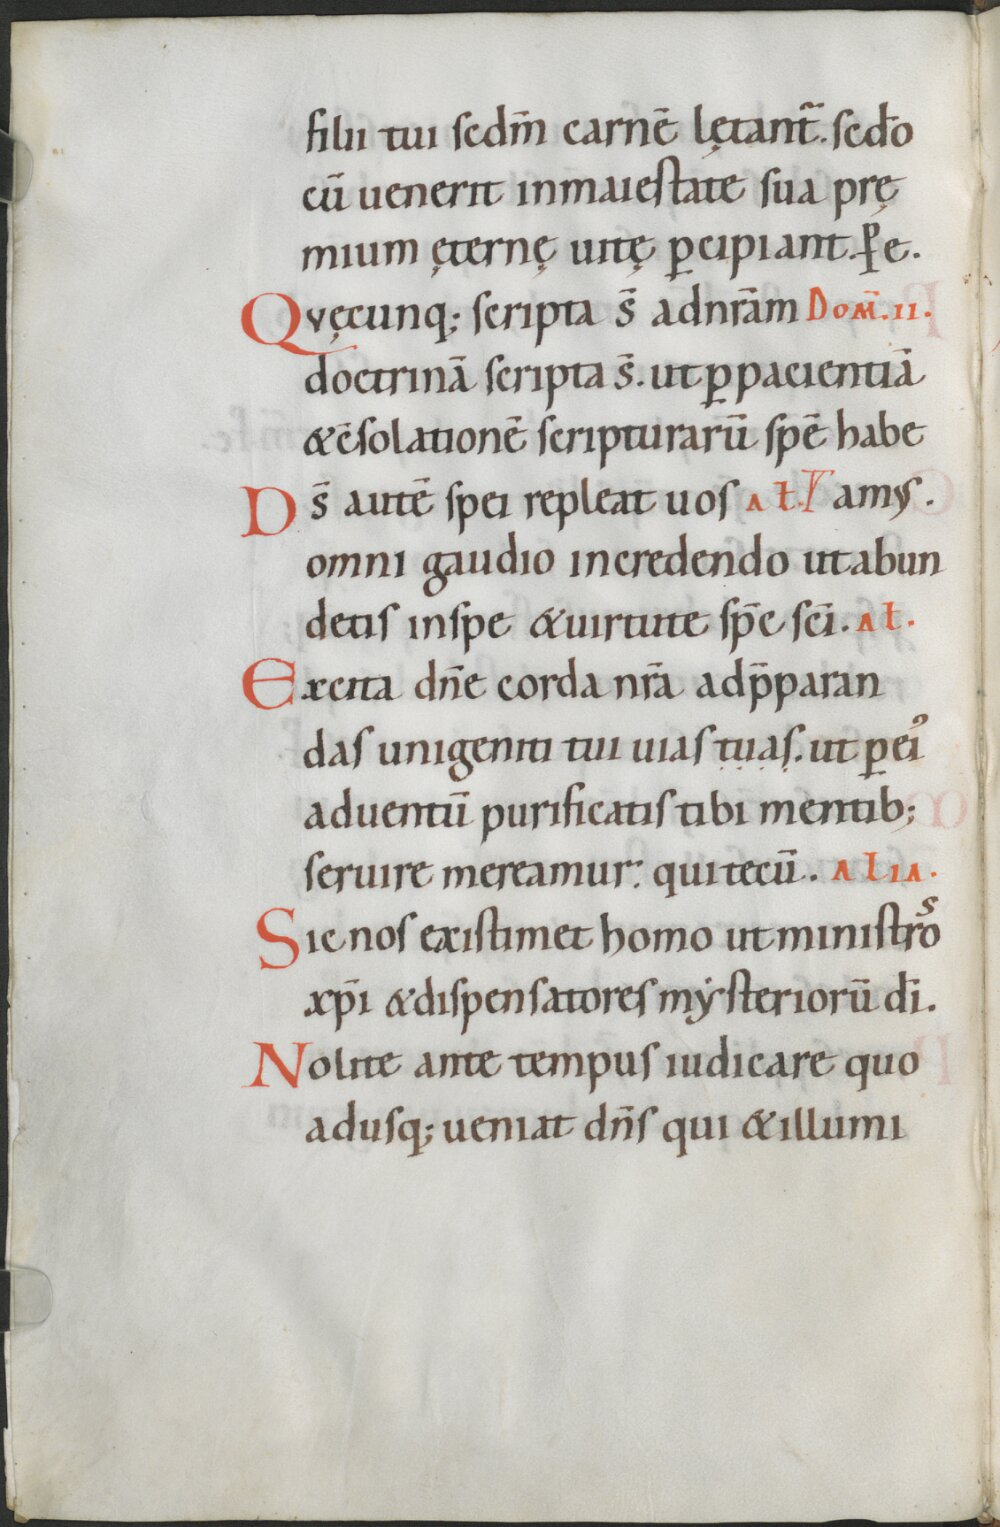 filii tui scdm̄ carnē lętant̄. sed̄o
cū uenerit inmaiestate sua prę
mium ęternę uitę ꝑcipiant. ꝑe.
Qvęcunq; scripta s̄ adnr̄am Dom̄.II.
doctrinā scripta s̄. ut ꝑpacientiā
&c̄solationē scripturarū spē habe
D s̄ autē spei repleat uos Aƚ. amꝰ.
omni gaudio incredendo utabun
detis inspe &uirtute sp̄c sc̄i. Aƚ.
Excita dn̄e corda nr̄a adp̄paran
das unigeniti tui uias tuas. ut ꝑeiꝰ
aduentū purificatis tibi mentib;
seruire mereamur. quitecū. ALIA.
Sic nos existimet homo ut ministros
xp̄i &dispensatores mẏsteriorū dī.
Nolite ante tempus iudicare quo
adusq; ueniat dn̄s qui &illumi